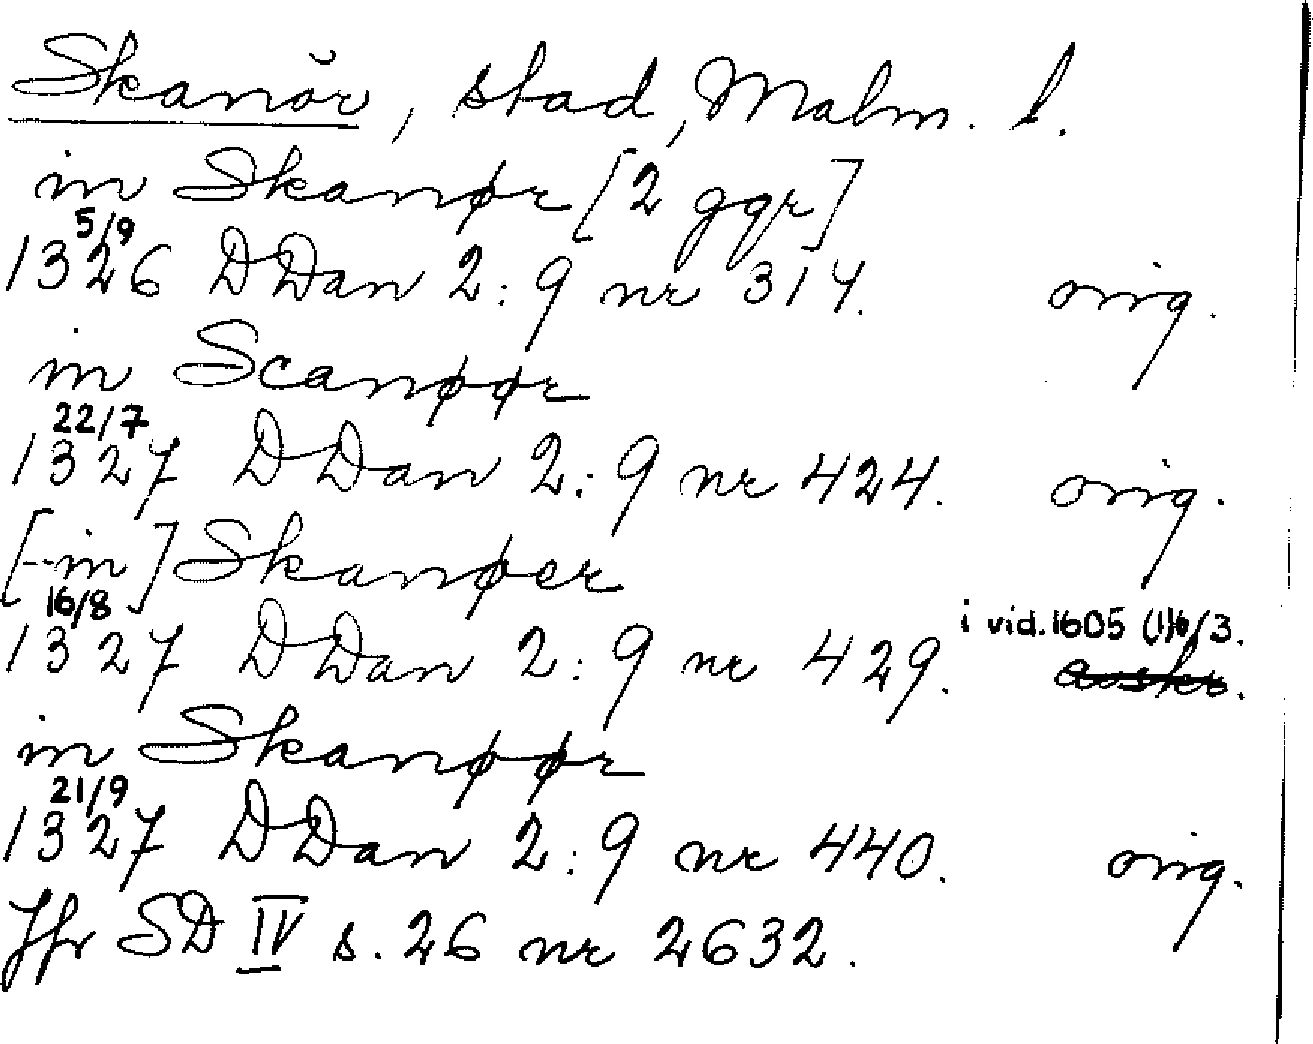 Skanör, stad, Malm. l.
in Skanør [2 ggr]
5/9
1326 DDan 2:9 nr 314. orig.
in Scanøør
22/7
1327 DDan 2:9 nr 424. orig.
[-in] Skanøer
16/8
1327 DDan 2:9 nr 429. i vid. 1605 (1)6/3.
avskr.
in Skanøør
21/9
1327 DDan 2:9 nr 440. orig.
Jfr SD IV s. 26 nr 2632.